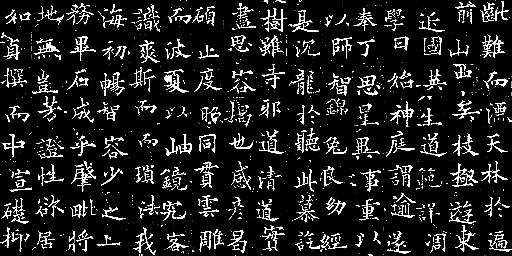 難而漂天林於遍
前山西矣枝極遊東
近國其生道範詳凋
學曰神庭謂逾遂
奉丁思星異事重以
以師智錦兔良幼經
是沉龍於聽此慕訖
樹雖寺邪道清道實
盡思容揭也感彥昌
碩止度昭同貫雲雕
而波夏以岫鏡究客
識爽斯而而瑣法我
海初暢智容少之上
務畢石成乎肇毗將
地無豈芳證性欲居
和首撰而中宣礎抑